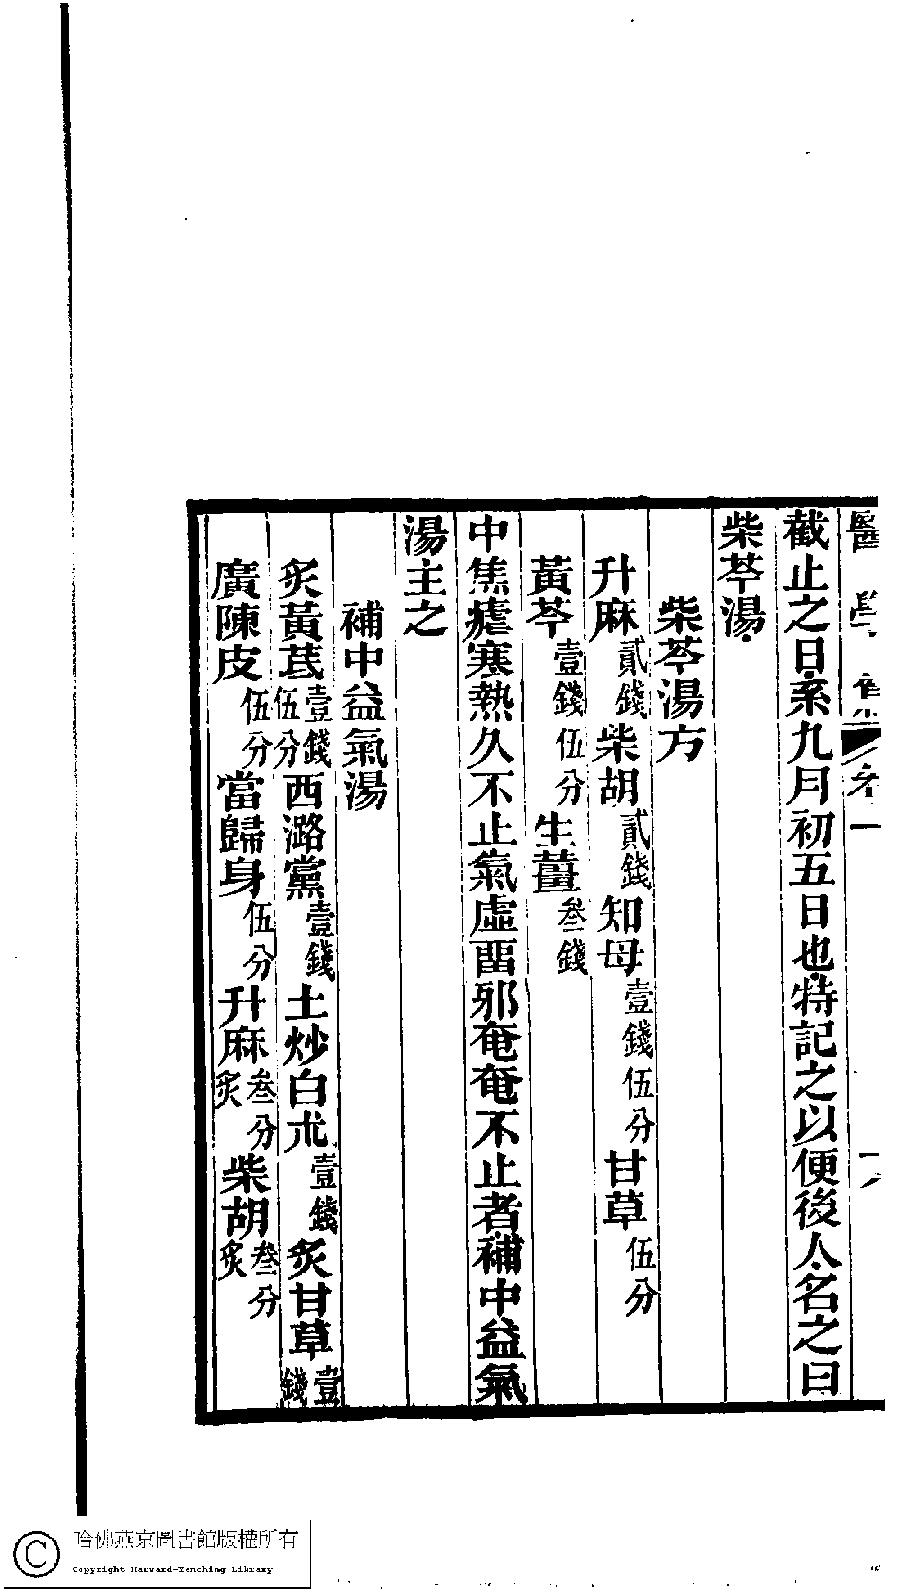 醫學
卷一
截止之日系九月初五日也特記之以便後人名之曰
柴芩湯
柴芩湯方
升麻貳錢柴胡貳錢知母壹錢伍分甘草伍分
黃芩壹錢伍分生薑叁錢
中焦瘧寒熱久不止氣虛畱邪奄奄不止者補中益氣
湯主之
補中益氣湯
炙黃芪壹錢伍分西潞黨壹錢土炒白朮壹錢炙甘草壹錢
廣陳皮伍分當歸身伍分升麻叁分炙柴胡叁分炙
哈佛燕京圖書館版權所有
Copyright Harvard-Yenching Library